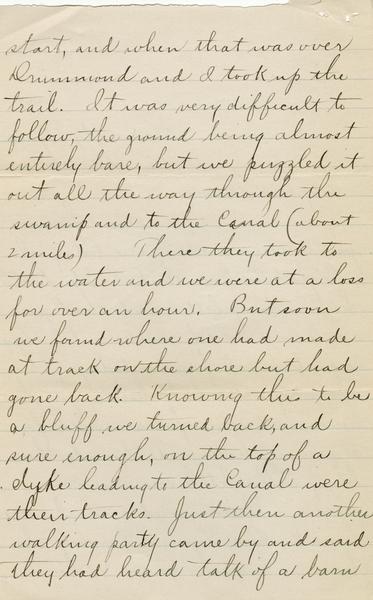 start, and when that was over
Drummond and I took up the
trail. It was very difficult to
follow, the ground being almost
entirely bare, but we puzzled it
out all the way through the
swamp and to the Canal (about
2 miles) There they took to
the water and we were at a loss
for over an hour. But soon
we found where one had made
at track on the shore but had
gone back. Knowing this to be
a bluff we turned back, and
sure enough, on the top of a
dyke leading to the Canal were
their tracks. Just then another
walking party came by and said
they had heard talk of a barn